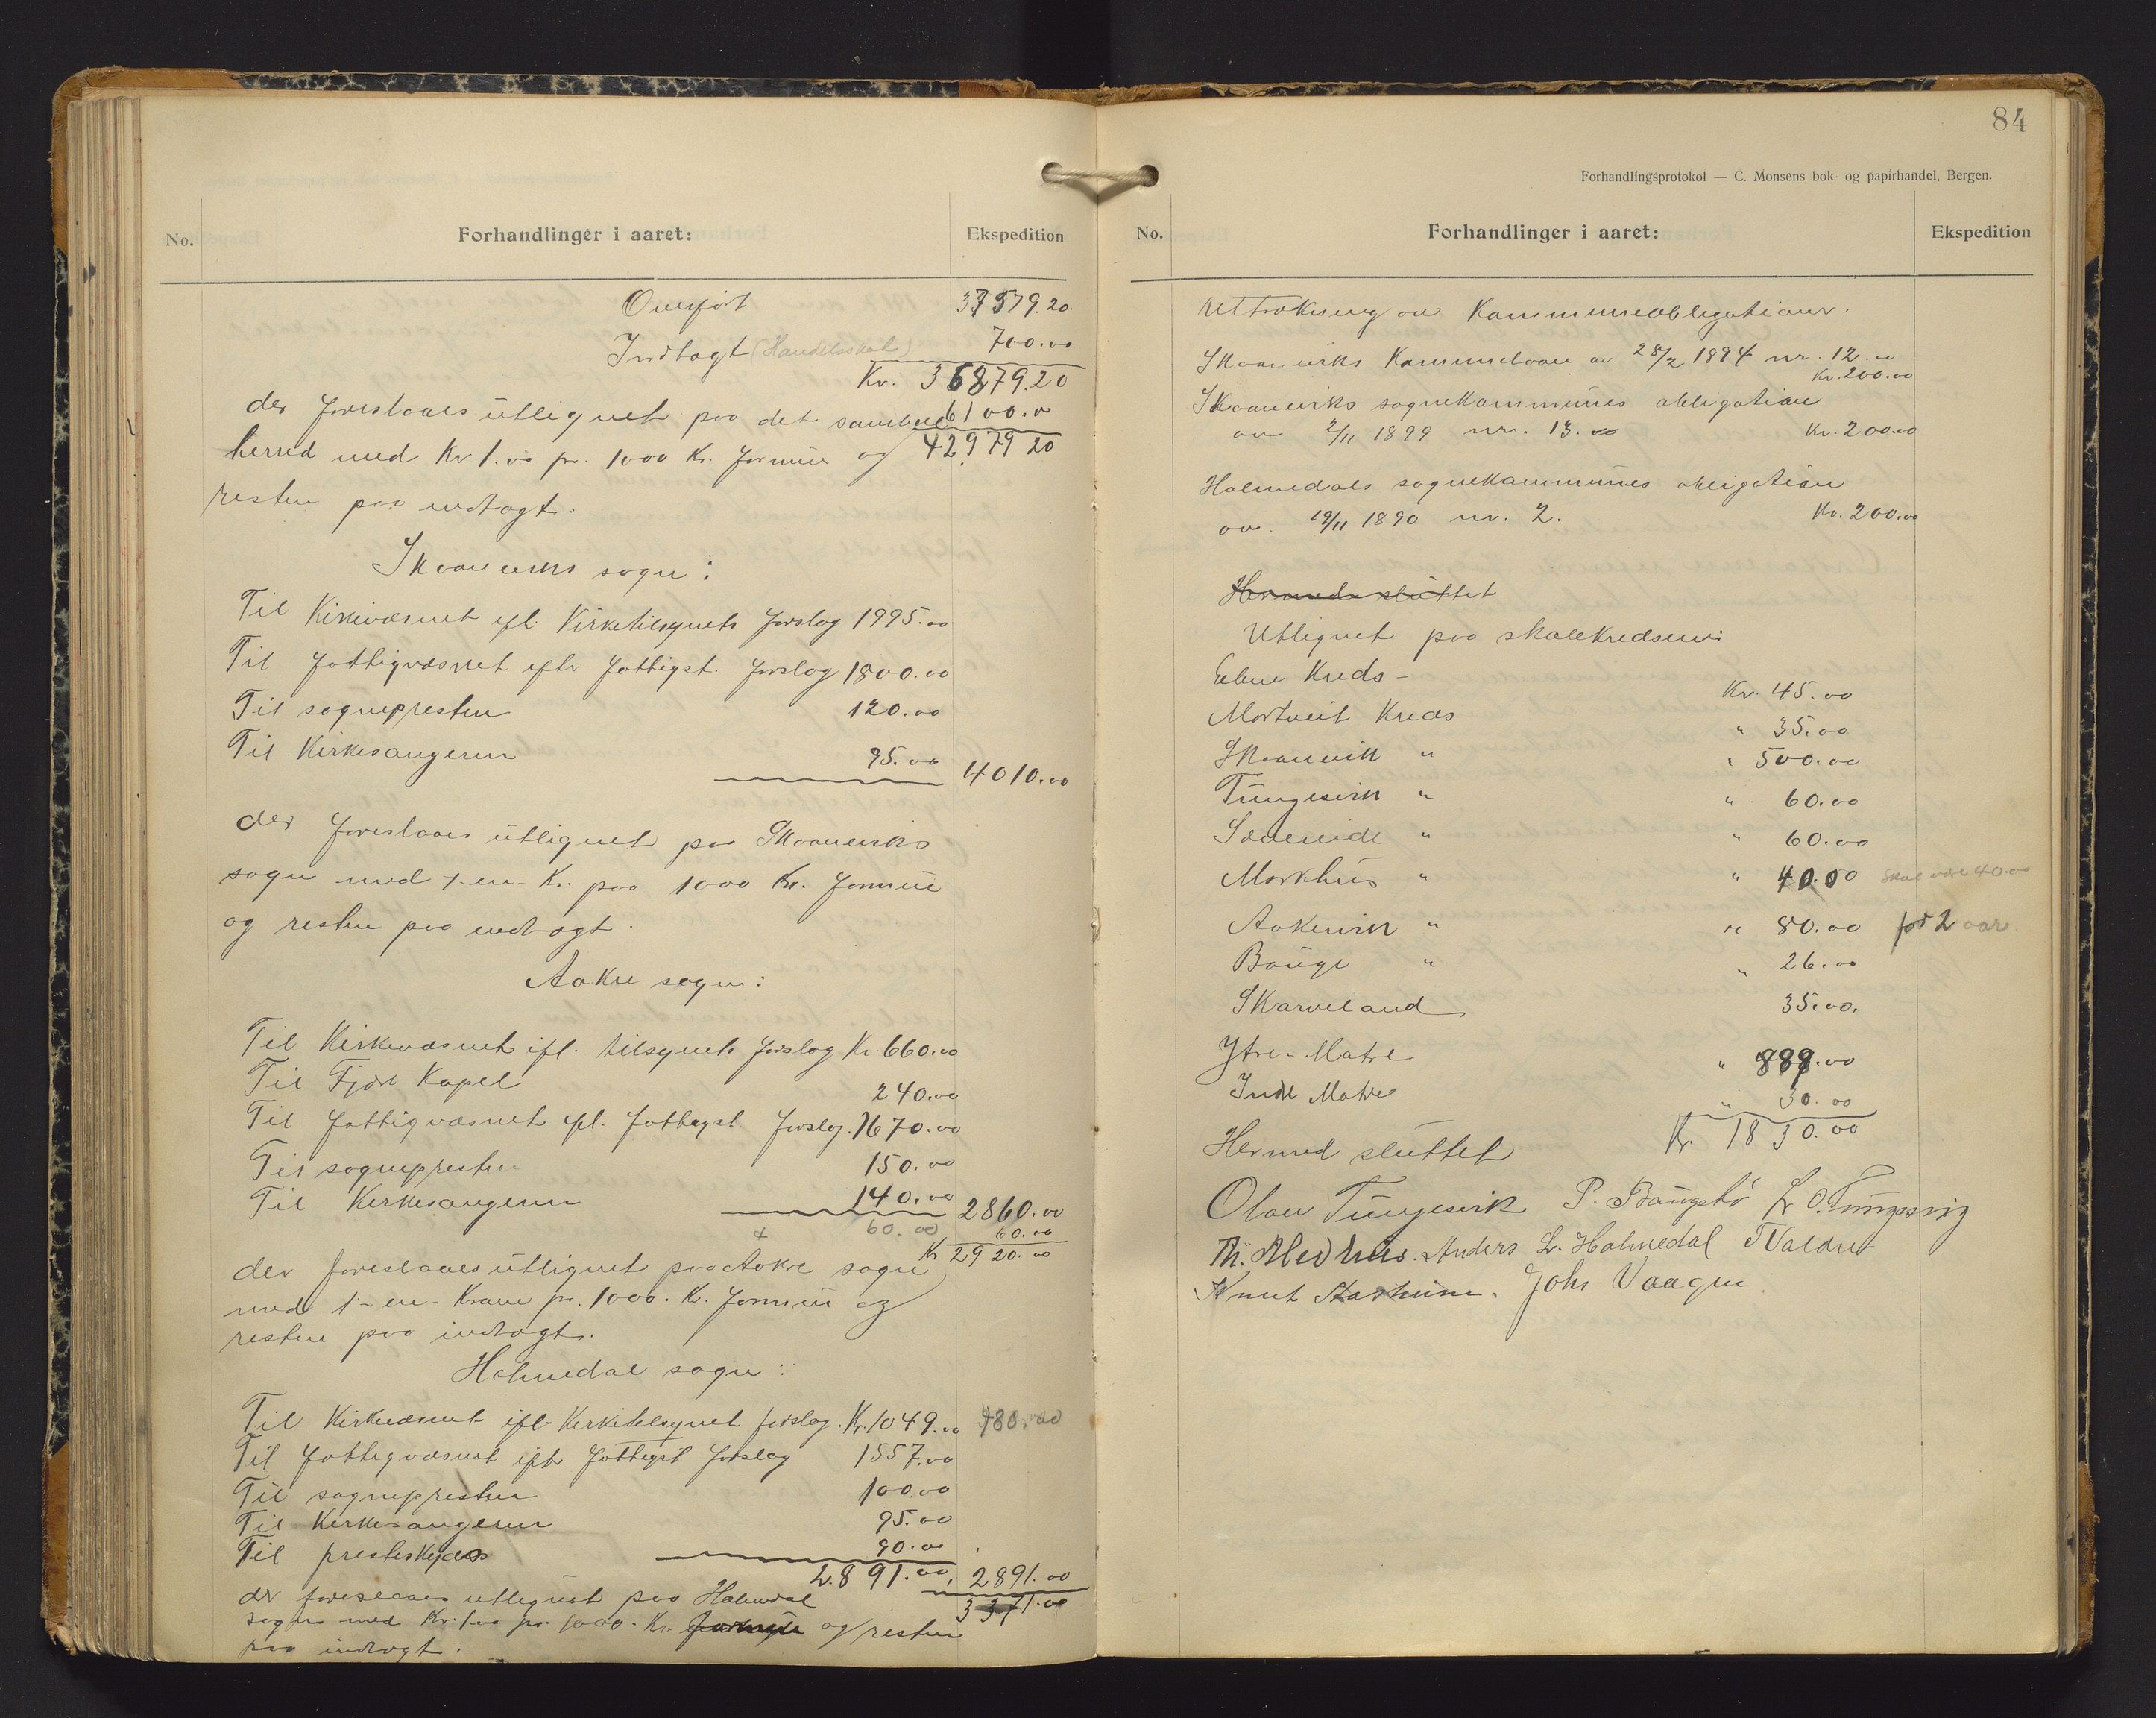 No.
Forhandlinger i aaret:
Ekspedition
Overført 37579.20.
Indtægt (Handelsskat) 700.00
Kr. 36879.20
6100.00
der foreslaaes utlignet paa det samlede
42979 20
herred med Kr 1.00 pr. 1000 Kr. formue og
resten paa indtægt.
Skaaneviks sogn:
Til Kirkevæsnet efl. Kirketilsynets forslag 1995.00
Til fattigvæsnet efter fattigst. forslag 1800.00
Til sognepresten 120.00
Til Kirkesangeren 95.00 4010.00
der foreslaaes utlignet paa Skaaneviks
sogn med 1-en- Kr. paa 1000 Kr. formue
og resten paa indtægt.
Aakre sogn:
Til Kirkevæsnet ifl. tilsynets forslag Kr 660.00
Til Fjære Kapel 240.00
Til fattigvæsnet efl. fattigst. forslag. 1670.00
Til sognepresten 150.00
Til Kirkesangeren 140.00 2860.00
+ 60.00 60.00
Kr 2920.00
der foreslaaes utlignet paa Aakre sogn
med 1-en- Krone pr. 1000. Kr. formue og
resten paa indtægt.
Holmedal sogn:
Til Kirkevæsnet ifl. Kirketilsynet forslag. Kr. 1049.00 480.00
Til fattigvæsnet ifl. fattigst forslag 1557.00
Til sognepresten 100.00
Til Kirkesangeren 95.00
Til presteskyds 90.00
2.891.00, 2891.00
3371.00
der foreslaaes utlignet paa Holmedal
sogn med Kr. 1.00 pr. 1000. Kr. formue og resten
paa indtægt.
84
Forhandlingsprotokol — C. Monsens bok- og papirhandel, Bergen.
No.
Forhandlinger i aaret:
Ekspedition
Uttrækning av Kommuneobligationer.
Skaaneviks Kommunelaan av 28/2 1894 nr. 12.00
Kr. 200.00
Skaaneviks sognekommunes obligation
av 2/11 1899 nr. 13. Kr. 200.00
Holmedals sognekommunes obligation
av 19/11 1890 nr. 2. Kr. 200.00
Hermed sluttet
Utlignet paa skolekredsene:
Ebne Kreds - Kr. 45.00
Mortveit Kreds " 35.00
Skaanevik " " 500.00
Tungesvik " " 60.00
Sævereide " " 60.00
Markhus " " 40.00 skal være 40.00
Aakrevik " " 80.00 for 2 aar
Bauge " " 26.00
Skarveland 35.00.
Ytre-Matre " 889.00
Indre Matre " 30.00
Kr. 1830.00
Hermed sluttet
Olav Tungesvik P. Baugstø L. O. Tungesvig
Th. Medhus. Anders L. Holmedal T Valdre
Knut Aarheim. Johs Vaagen